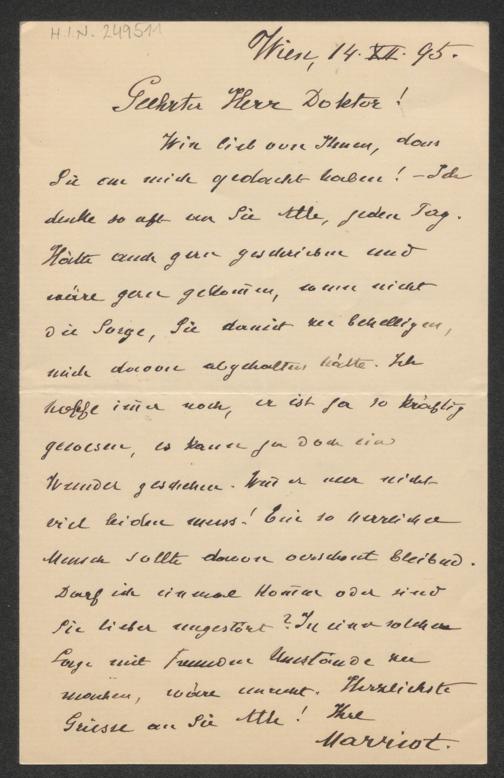 H.I.N. 249511
Wien, 14. XII. 95.
Geehrter Herr Doktor!
Wie lieb von Ihnen, dass
Sie an mich gedacht haben! – Ich
denke so oft an Sie Alle, jeden Tag.
Hätte auch gern geschrieben und
wäre gern gekommen, wenn nicht
die Sorge, Sie damit zu behelligen,
mich davon abgehalten hätte. Ich
hoffe immer noch, er ist ja so kräftig
gewesen, es kann ja doch ein
Wunder geschehen. Wenn er nur nicht
viel leiden muss! Ein so herrlicher
Mensch sollte davon verschont bleiben.
Darf ich einmal kommen oder sind
Sie lieber ungestört? In einer solchen
Sorge mit fremden Umstände zu
machen, wäre unrecht. Herzlichste
Grüsse an Sie Alle! Ihre
Marriot.